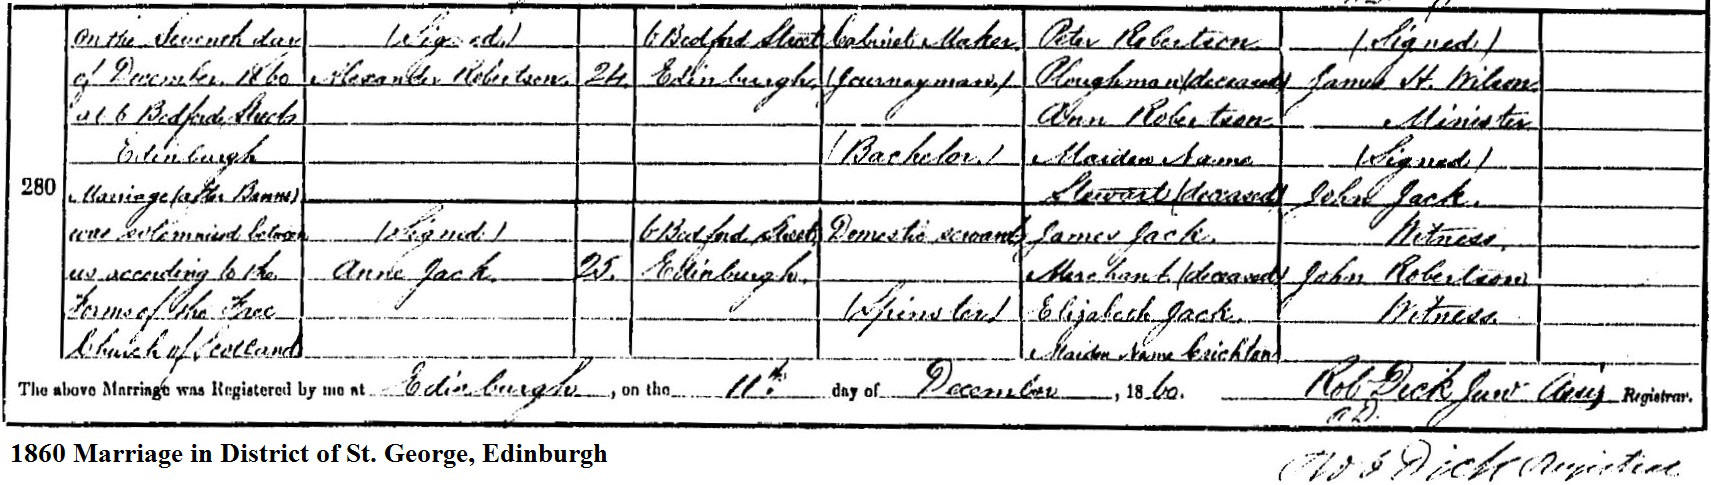 280
on the Seventh day
of December 1860
at 6 Bedford Street
Edinburgh
Marriage (after Banns)
was solemnized between
us according to the
Forms of the Free
Church of Scotland
(Signed)
Alexander Robertson.
(Signed)
Anne Jack.
24.
25.
6 Bedford Street
Edinburgh.
6 Bedford Street,
Edinburgh.
Cabinet Maker
(Journeyman)
(Bachelor)
Domestic servant
(Spinster)
Peter Robertson
Ploughman (deceased)
Ann Robertson
Maiden Name
Stewart (deceased)
James Jack.
Merchant (deceased)
Elizabeth Jack.
Maiden Name Crichton
(Signed)
James H. Wilson
Minister
(Signed)
John Jack.
Witness.
John Robertson
Witness.
The above Marriage was Registered by me at Edinburgh, on the 11th. day of December, 1860. Rob Dick Junr Assis Registrar.
Dick Registrar
1860 Marriage in District of St. George, Edinburgh